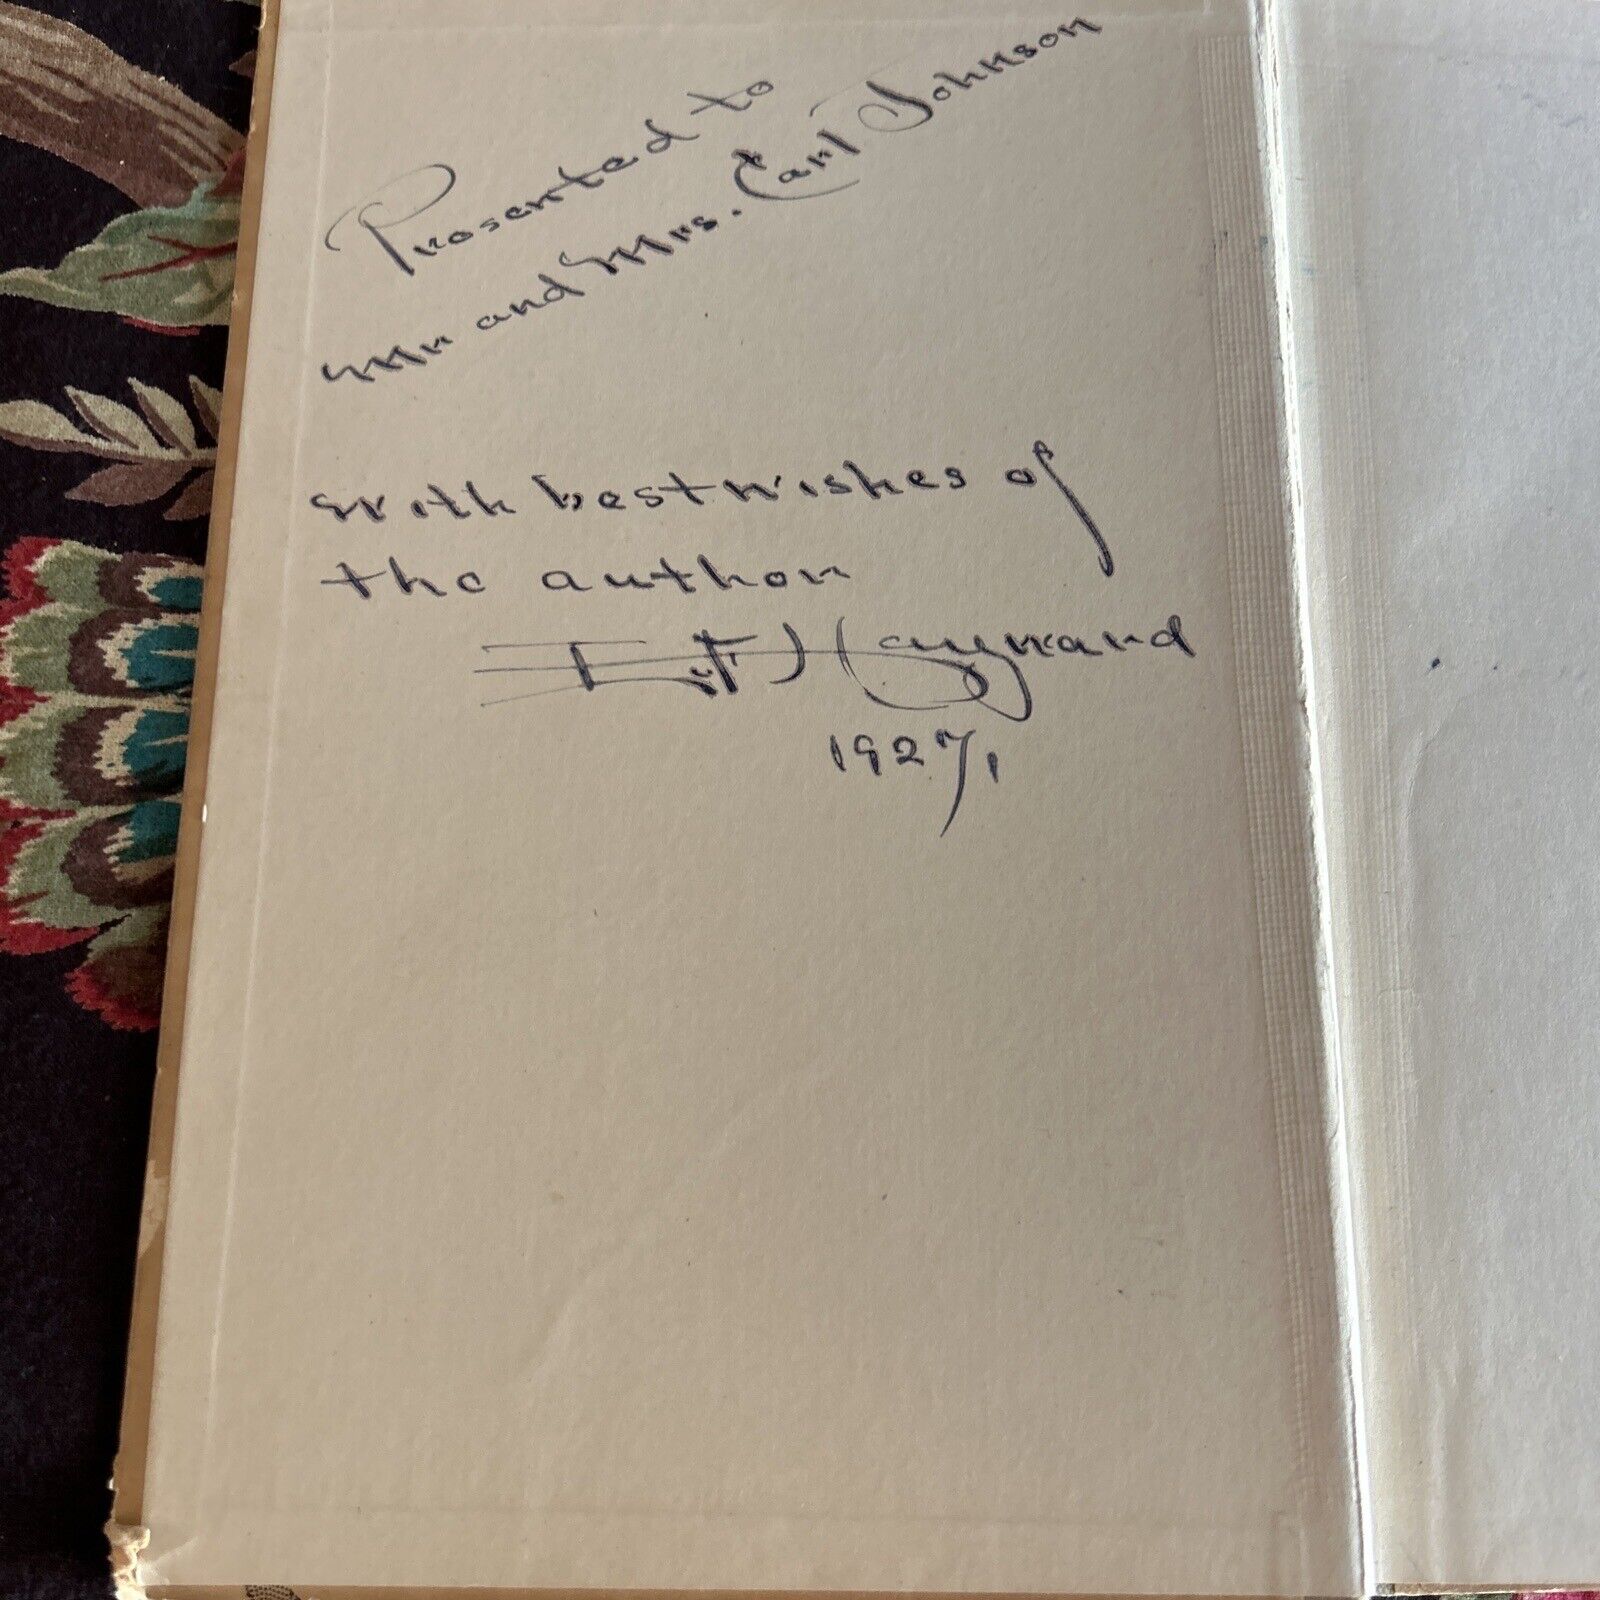 Presented to
Mr and Mrs. Carl Johnson
With best wishes of
the author
Hayward
1927,